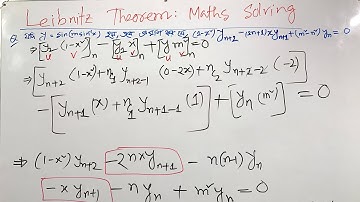 Leibnitz Theorem: Maths Solving
Q. যদি y = sin(msin⁻¹x) হয়, তবে প্রমাণ কর যে, (1-x²)y_{n+2} -(2n+1)xy_{n+1} +(m²-n²)y_n = 0
⇒ [y₂ (1-x²)]_n - [y₁ x]_n + [y m²]_n = 0
u v u v
⇒ [y_{n+2} (1-x²) + n_{c₁} y_{n+2-1} (0-2x) + n_{c₂} y_{n+2-2} (-2)]
- [y_{n+1} (x) + n_{c₁} y_{n+1-1} (1)] + [y_n (m²)] = 0
⇒ (1-x²) y_{n+2} -2nxy_{n+1} - n(n-1)y_n
-xy_{n+1} - ny_n + m²y_n = 0